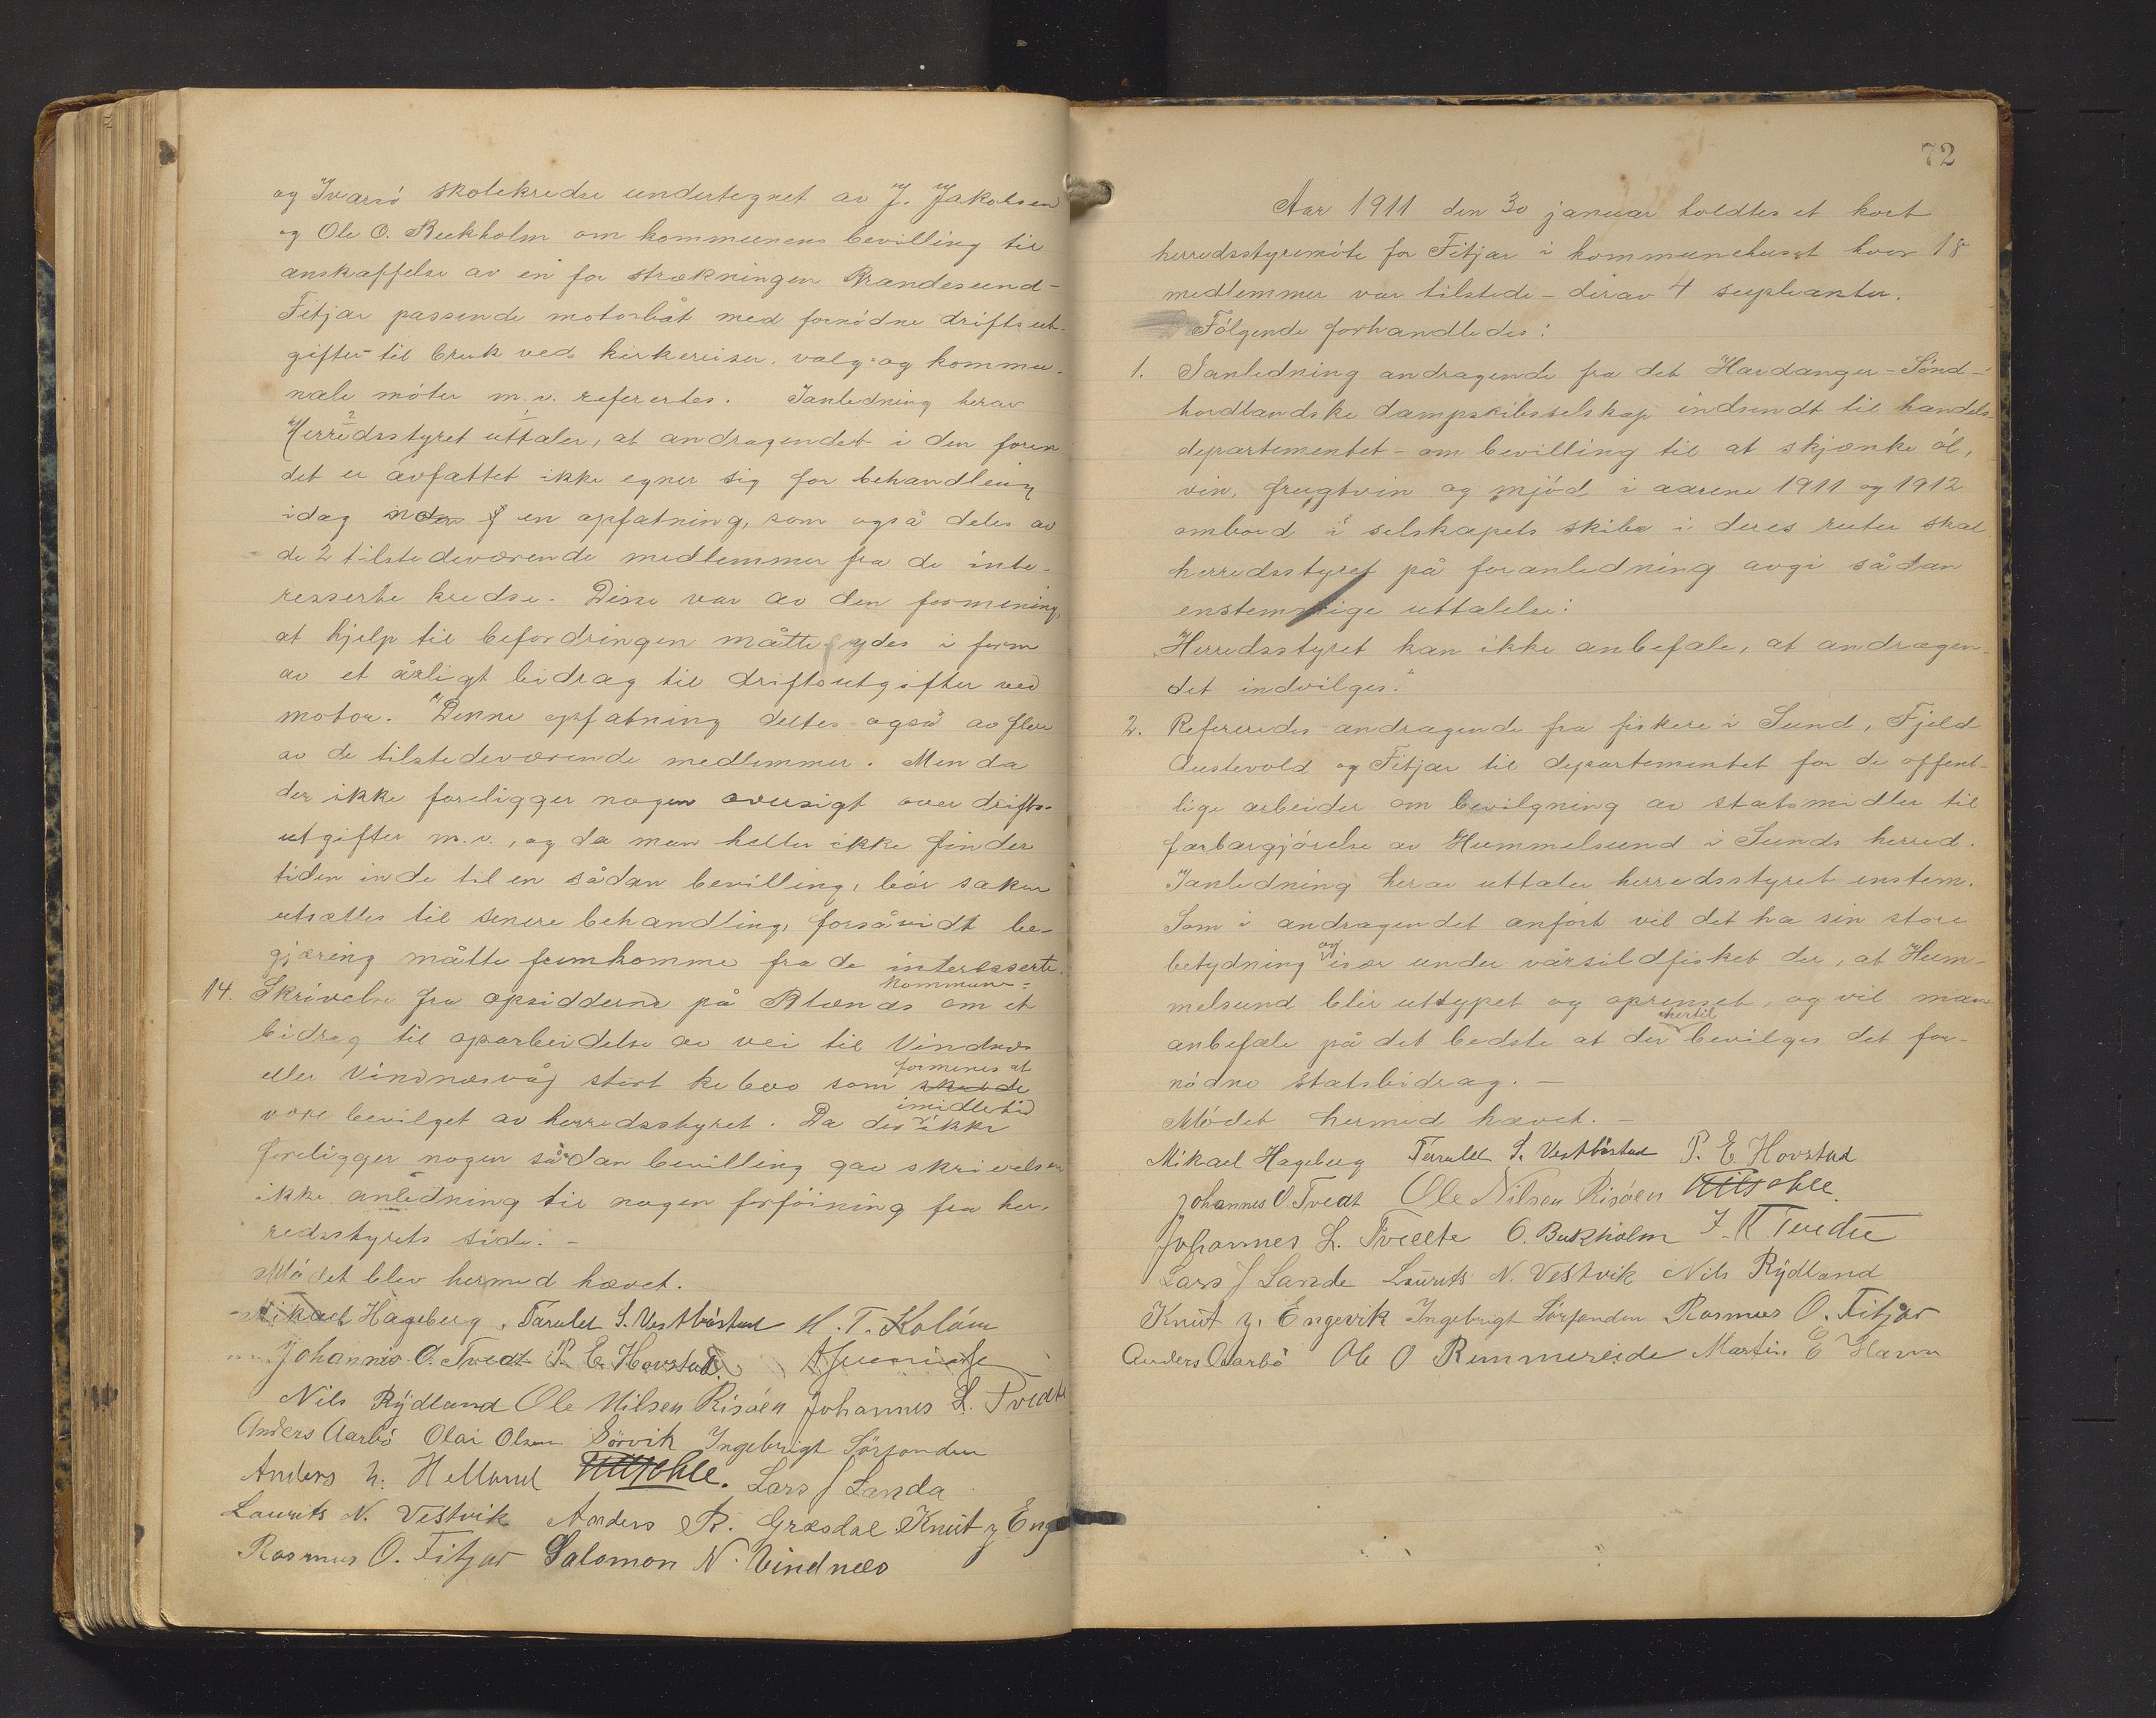 og Ivarsö skolekredse undertegnet av J. Jakobsen
og Ole O. Bukholm om kommunens bevilling til
anskaffelse av en for strækningen Brandesund-
Fitjar passende motorbåt med fornödne driftsut-
gifter til bruk ved kirkereiser, valg- og kommu-
nale möter m. v. referertes. Ianledning herav
Herredsstyret uttaler, at andragendet i den form
det er avfattet ikke egner sig for behandling
idag en opfatning, som også deles av
de 2 tilstedeværende medlemmer fra de inte-
resserte kredse. Disse var av den formening,
at hjelp til befordringen måtte ydes i form
av et årligt bidrag til driftsutgifter ved
motor. Denne opfatning deltes også av flere
av de tilstedeværende medlemmer. Men da
der ikke foreligger nogen oversigt over drifts-
utgifter m. v., og da man heller ikke finder
tiden inde til en sådan bevilling, bör saken
utsættes til senere behandling, forsåvidt be-
gjæring måtte fremkomme fra de interesserte.
kommune-
14. Skrivelse fra opsidderne på om et
bidrag til oparbeidelse av vei til Vindnes
formenes at
eller Vindnesvåg stort kr 600 som skulde
imidlertid
være bevilget av herredsstyret. Da der ikke
foreligger nogen sådan bevilling gav skrivelsen
ikke anledning til nogen forföining fra her-
redsstyrets side. -
Mödet blev hermed hævet.
Mikael Hageberg, Tarald S. Vestböstad M. T. Kalöen
Johannes O. Tvedt P. E. Hovstad
Nils Rydland Ole Nilsen Risöen Johannes L. Tvedte
Anders Aarbö Olai Olsen Sörvik Ingebrigt Sörfonden
Anders N. Helland Lars J Landa
Laurits N. Vestvik Anders R. Græsdal Knut J Eng
Rasmus O. Fitjar Salomon N. Vindnes
72
Aar 1911 den 30 januar holdtes et kort
herredsstyremöte for Fitjar i kommunehuset hvor 18
medlemmer var tilstede - derav 4 supleanter.
Fölgende forhandledes:
1. Ianledning andragende fra det Hardanger-Sönd-
hordlandske dampskibsselskap indsendt til handels-
departementet - om bevilling til at skjænke öl,
vin, frugtvin og mjöd i aarene 1911 og 1912
ombord i selskapets skibe i deres ruter skal
herredsstyret på foranledning avgi sådan
enstemmige uttalelse:
"Herredsstyret kan ikke anbefale, at andragen-
det indvilges."
2. Refereredes andragende fra fiskere i Sund, Fjeld
Austevold og Fitjar til departementet for de offent-
lige arbeider om bevilgning av statsmidler til
farbargjörelse av Hummelsund i Sunds herred.
Ianledning herav uttaler herredsstyret enstem.
Som i andragendet anfört vil det ha sin store
og
betydning især under vårsildfisket der, at Hum-
melsund blir utdypet og oprenset, og vil man
hertil
anbefale på det bedste at der bevilges det for-
nödne statsbidrag. -
Mödet hermed hævet. -
Mikael Hageberg Tarald S. Vestböstad P. E. Hovstad
Johannes O. Tvedt Ole Nilsen Risöen
Johannes L. Tvedte O. Bukholm J. M Tvedte
Lars J Lande Laurits N. Vestvik Nils Rydland
Knut J. Engevik Ingebrigt Sörfonden Rasmus O. Fitjar
Anders Aarbö Ole O Rimmereide Martin E Havn